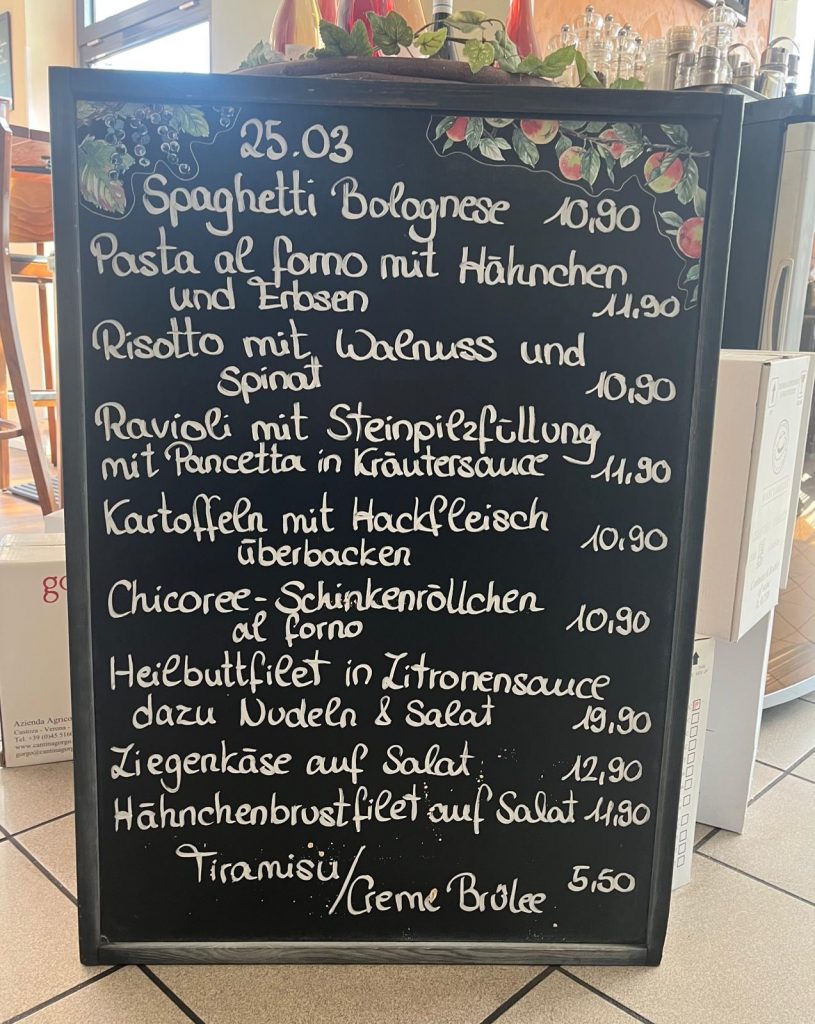 25.03
Spaghetti Bolognese 10,90
Pasta al forno mit Hähnchen
und Erbsen 11,90
Risotto mit Walnuss und
Spinat 10,90
Ravioli mit Steinpilzfüllung
mit Pancetta in Kräutersauce 11,90
Kartoffeln mit Hackfleisch
überbacken 10,90
Chicoree-Schinkenröllchen
al forno 10,90
Heilbuttfilet in Zitronensauce
dazu Nudeln & Salat 19,90
Ziegenkäse auf Salat 12,90
Hähnchenbrustfilet auf Salat 11,90
Tiramisu/
Creme Brûlee 5,50
go
Azienda Agrico
Custoza - Verona -
Tel. +39 (0)45 5160
www.cantinagorgo